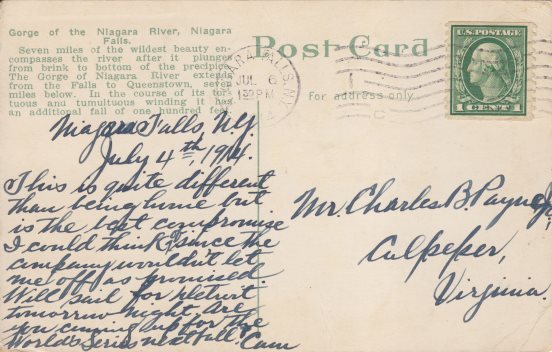 Gorge of the Niagara River, Niagara
Falls.
Seven miles of the wildest beauty en-
compasses the river after it plunges
from brink to bottom of the precipice.
The Gorge of Niagara River extends
from the Falls to Queenstown, seven
miles below. In the course of its tor-
tuous and tumultuous winding it has
an additional fall of one hundred feet.
Post Card
for address only
NIAGARA FALLS, N.Y.
JUL 6
30 PM
U.S. POSTAGE
1 CENT 1
Niagara Falls, N.Y.
July 4th, 1914.
This is quite different
than being home but
is the best compromise
I could think, since the
company wouldn't let
me off as promised.
Will sail for Detroit
tomorrow night. Are
you coming up for the
World's Series next fall. Cam
Mr. Charles B. Payne,
Culpeper,
Virginia.